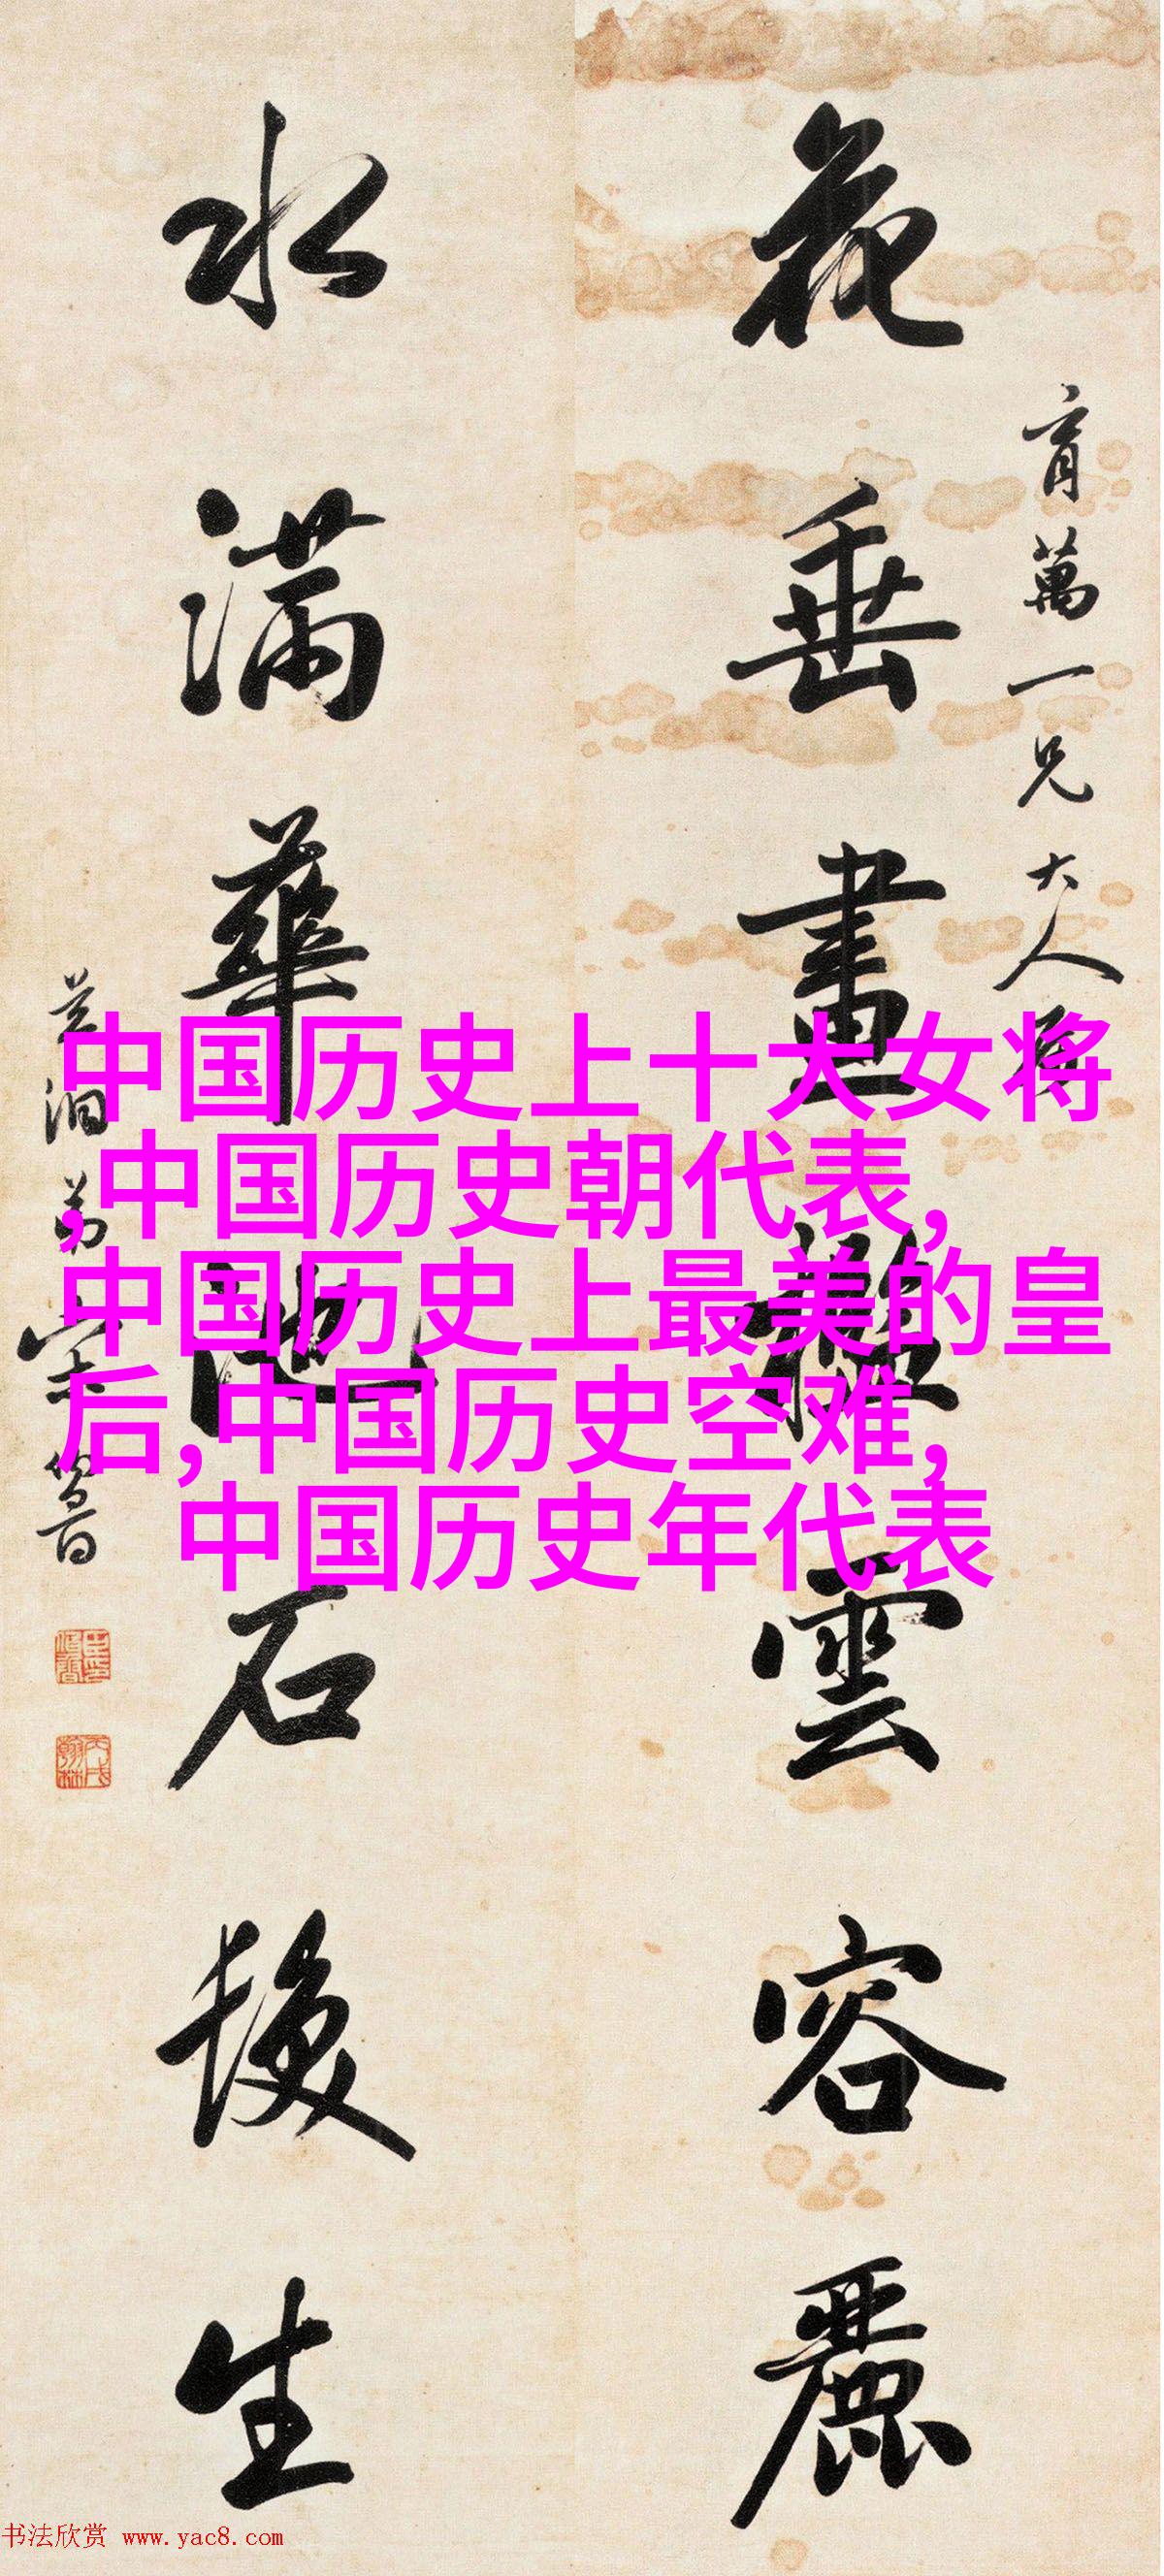 育萬一兄大人屬
花垂畫檻雲容麗
水滿華池石髮生
芝泂弟宋
中国历史上十大女将
,中国历史朝代表,
中国历史上最美的皇
后,中国历史空难,
中国历史年代表
书法欣赏 www.yac8.com